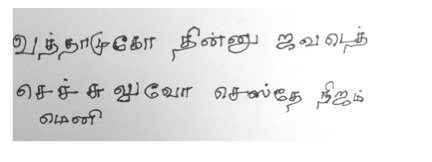 வத்தாமுகோ தின்னு ஜவடெத்
செச்சுவுவோ செஸ்தே நிஜம்
மெனி